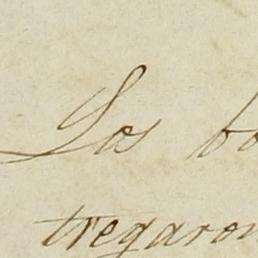 Los bo
tregaron